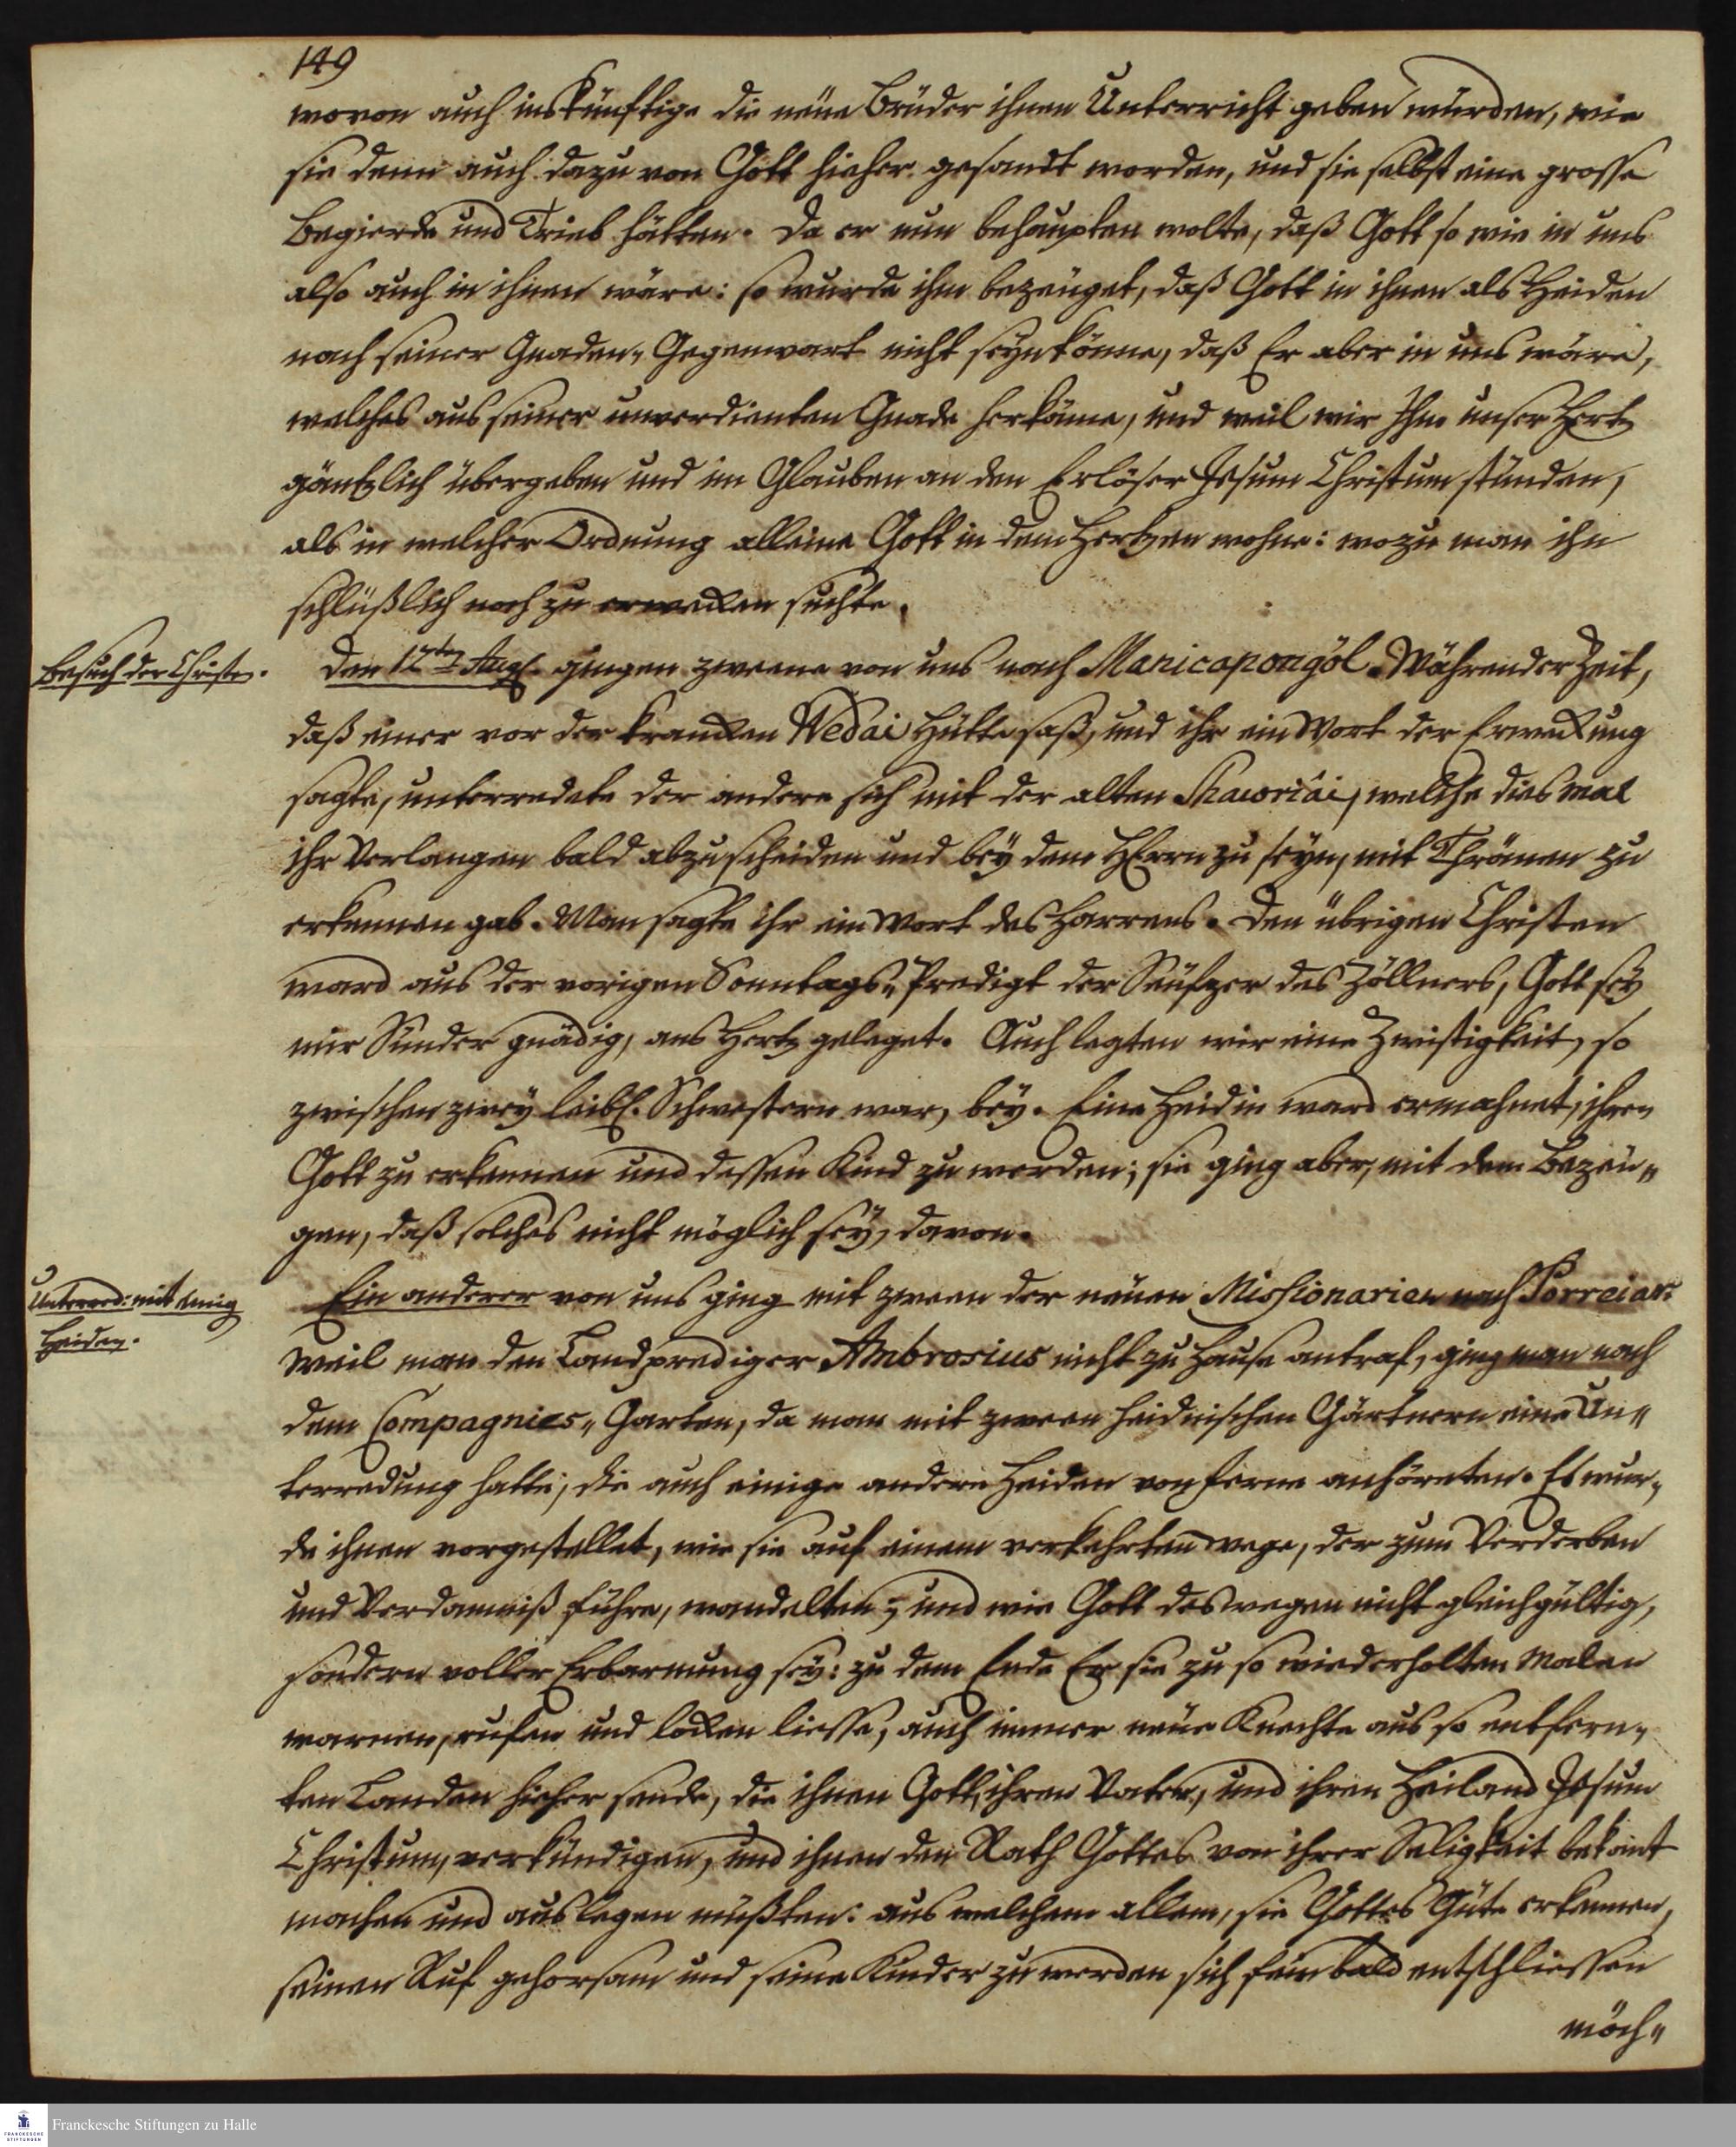 149
wovon auch inskünftige die neüe Brüder ihnen Unterricht geben würden, wie
sie denn auch dazu von Gott hieher gesandt worden, und sie selbst eine grosse
Begierde und Trieb hätten. Da er nun behaupten wolte, daß Gott so wie in uns
also auch in ihnen wäre: so wurde ihm bezeuget, daß Gott in ihnen als Heiden
nach seiner Gnaden-Gegenwart nicht seyn könne, daß Er aber in uns wäre,
welches aus seiner unverdienten Gnade herkäme, und weil wir Ihm unser Hertz
gäntzlich übergeben und im Glauben an den Erlöser Jesum Christum stünden,
als in welcher Ordnung alleine Gott in dem Hertzen wohne: wozu man ihn
schlüßlich noch zu erwecken suchte.
Besuch der Christen.
Den 12ten Aug. gingen zweene von uns nach Manicapongöl. Währender Zeit,
daß einer vor der krancken Wedai Hütte saß, und ihr ein Wort der Erweckung
sagte, unterredete der andere sich mit der alten Shaworiâi, welche dies mal
ihr Verlangen bald abzuscheiden und bey dem HErrn zu seyn, mit Thränen zu
erkennen gab. Man sagte ihr ein Wort des Harrens. Den übrigen Christen
ward aus der vorigen Sonntags-Predigt der Seüfzer des Zöllners, Gott sey
mir Sünder gnädig, ans Hertz geleget. Auch legten wir eine Zwistigkeit, so
zwischen zwey leibl. Schwestern war, bey. Eine Heidin ward ermahnet, ihren
Gott zu erkennen und dessen Kind zu werden; sie ging aber, mit dem Bezeü-
gen, daß solches nicht möglich sey, davon.
Unterred: mit einig
Heiden.
Ein anderer von uns ging mit zween der neüen Missionarien nach Porreiar.
Weil man den Landprediger Ambrosius nicht zu Hause antraf, ging man nach
dem Compagnies-Garten, da man mit zween heidnischen Gärtnern eine Un-
terredung hatte, die auch einige andere Heiden von ferne anhöreten. Es wur-
de ihnen vorgestellet, wie sie auf einem verkehrten Wege, der zum Verderben
und Verdamniß führe, wandelten; und wie Gott deswegen nicht gleichgültig,
sondern voller Erbarmung sey: zu dem Ende Er sie zu so wiederholten Malen
warnen, rufen und locken liesse, auch immer neüe Knechte aus so entfern-
ten Landen hieher sende, die ihnen Gott, ihren Vater, und ihren Heiland Jesum
Christum, verkündigen, und ihnen den Rath Gottes von ihrer Seligkeit bekant
machen und auslegen müßten: aus welchem allem, sie Gottes Güte erkennen,
seinen Ruf gehorsam und seine Kinder zu werden sich fein bald entschliessen
möch-
Franckesche Stiftungen zu Halle